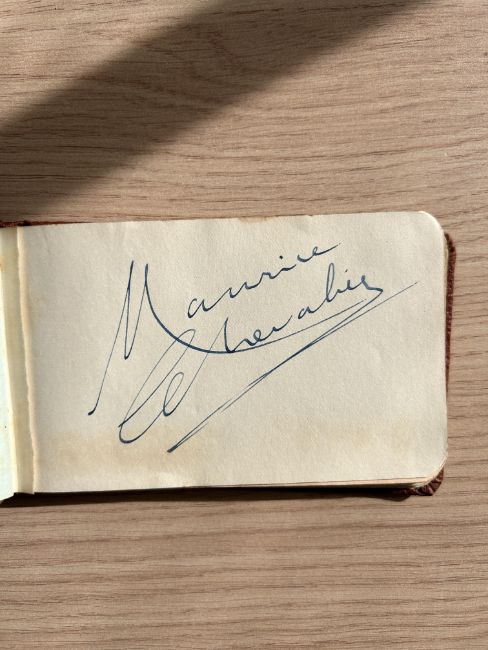 Maurice
Chevalier